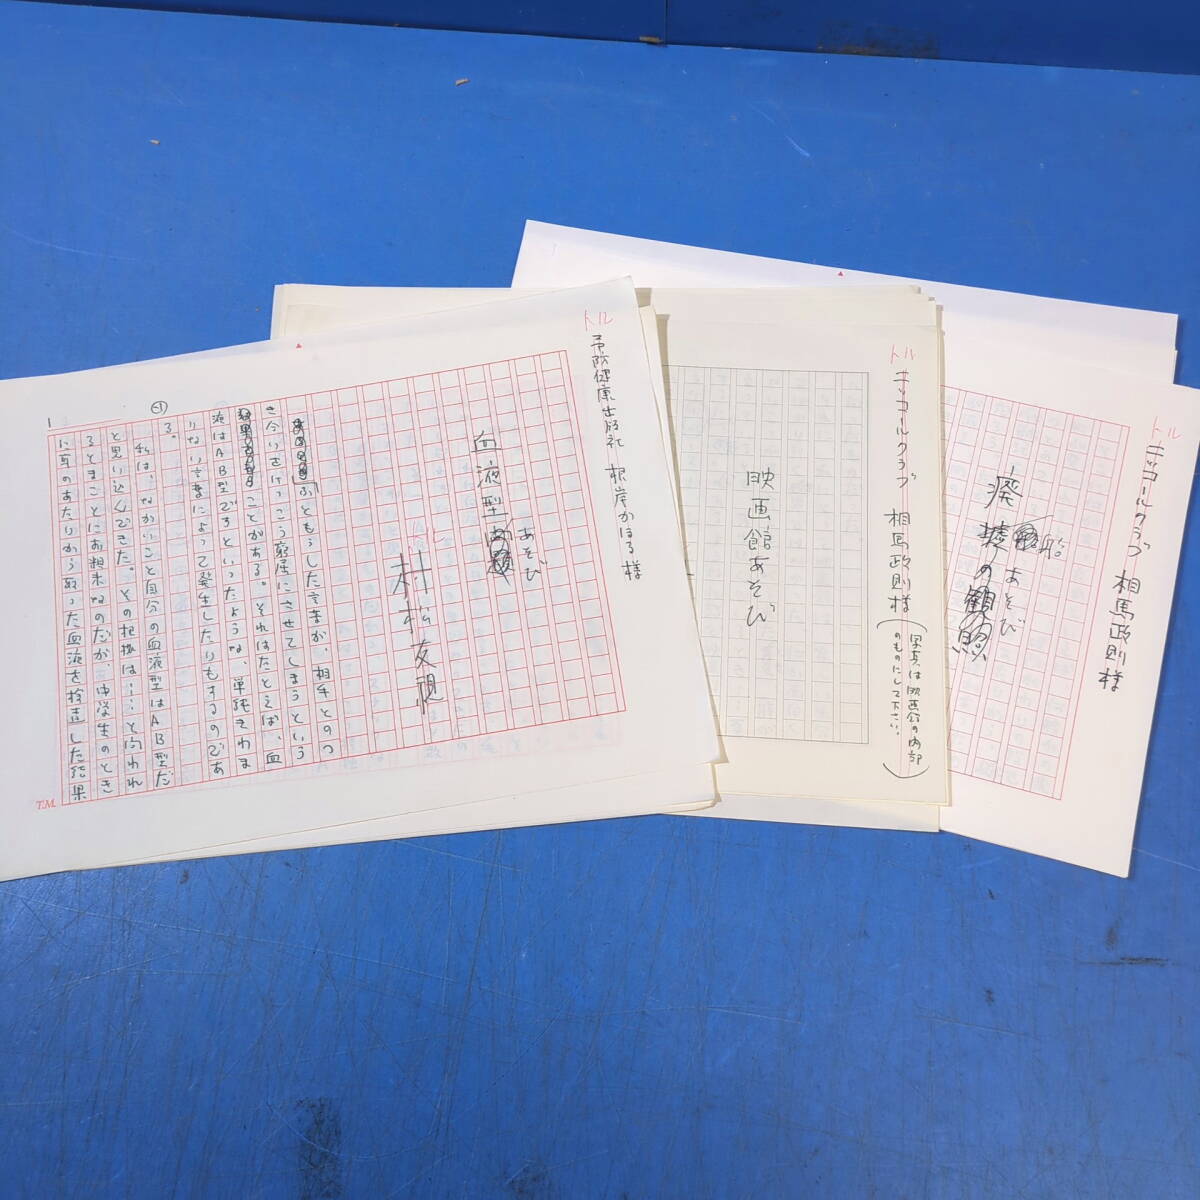 トル
ニッコールクラブ 相馬政則様
廃船あそび
の
トル
ニッコールクラブ 相馬政則様
(写真は映画館の内部
のものにして下さい。)
映画館あそび
トル
予防健康出版社 根岸かほる様
血液型あそび
トル
村松友視
ふともらした言葉が、相手とのつ
き合いをけっこう窮屈にさせてしまうという
ことがある。それはたとえば、血
液はAB型ですといったような、単純きわま
りない言葉によって発生したりもするのであ
る。
私は、ながいこと自分の血液型はAB型だ
と思い込んできた。その根拠は……と问われ
るとまことにお粗末なのだが、中学生のとき
に耳のあたりから取った血液を検査した結果
1
T.M.